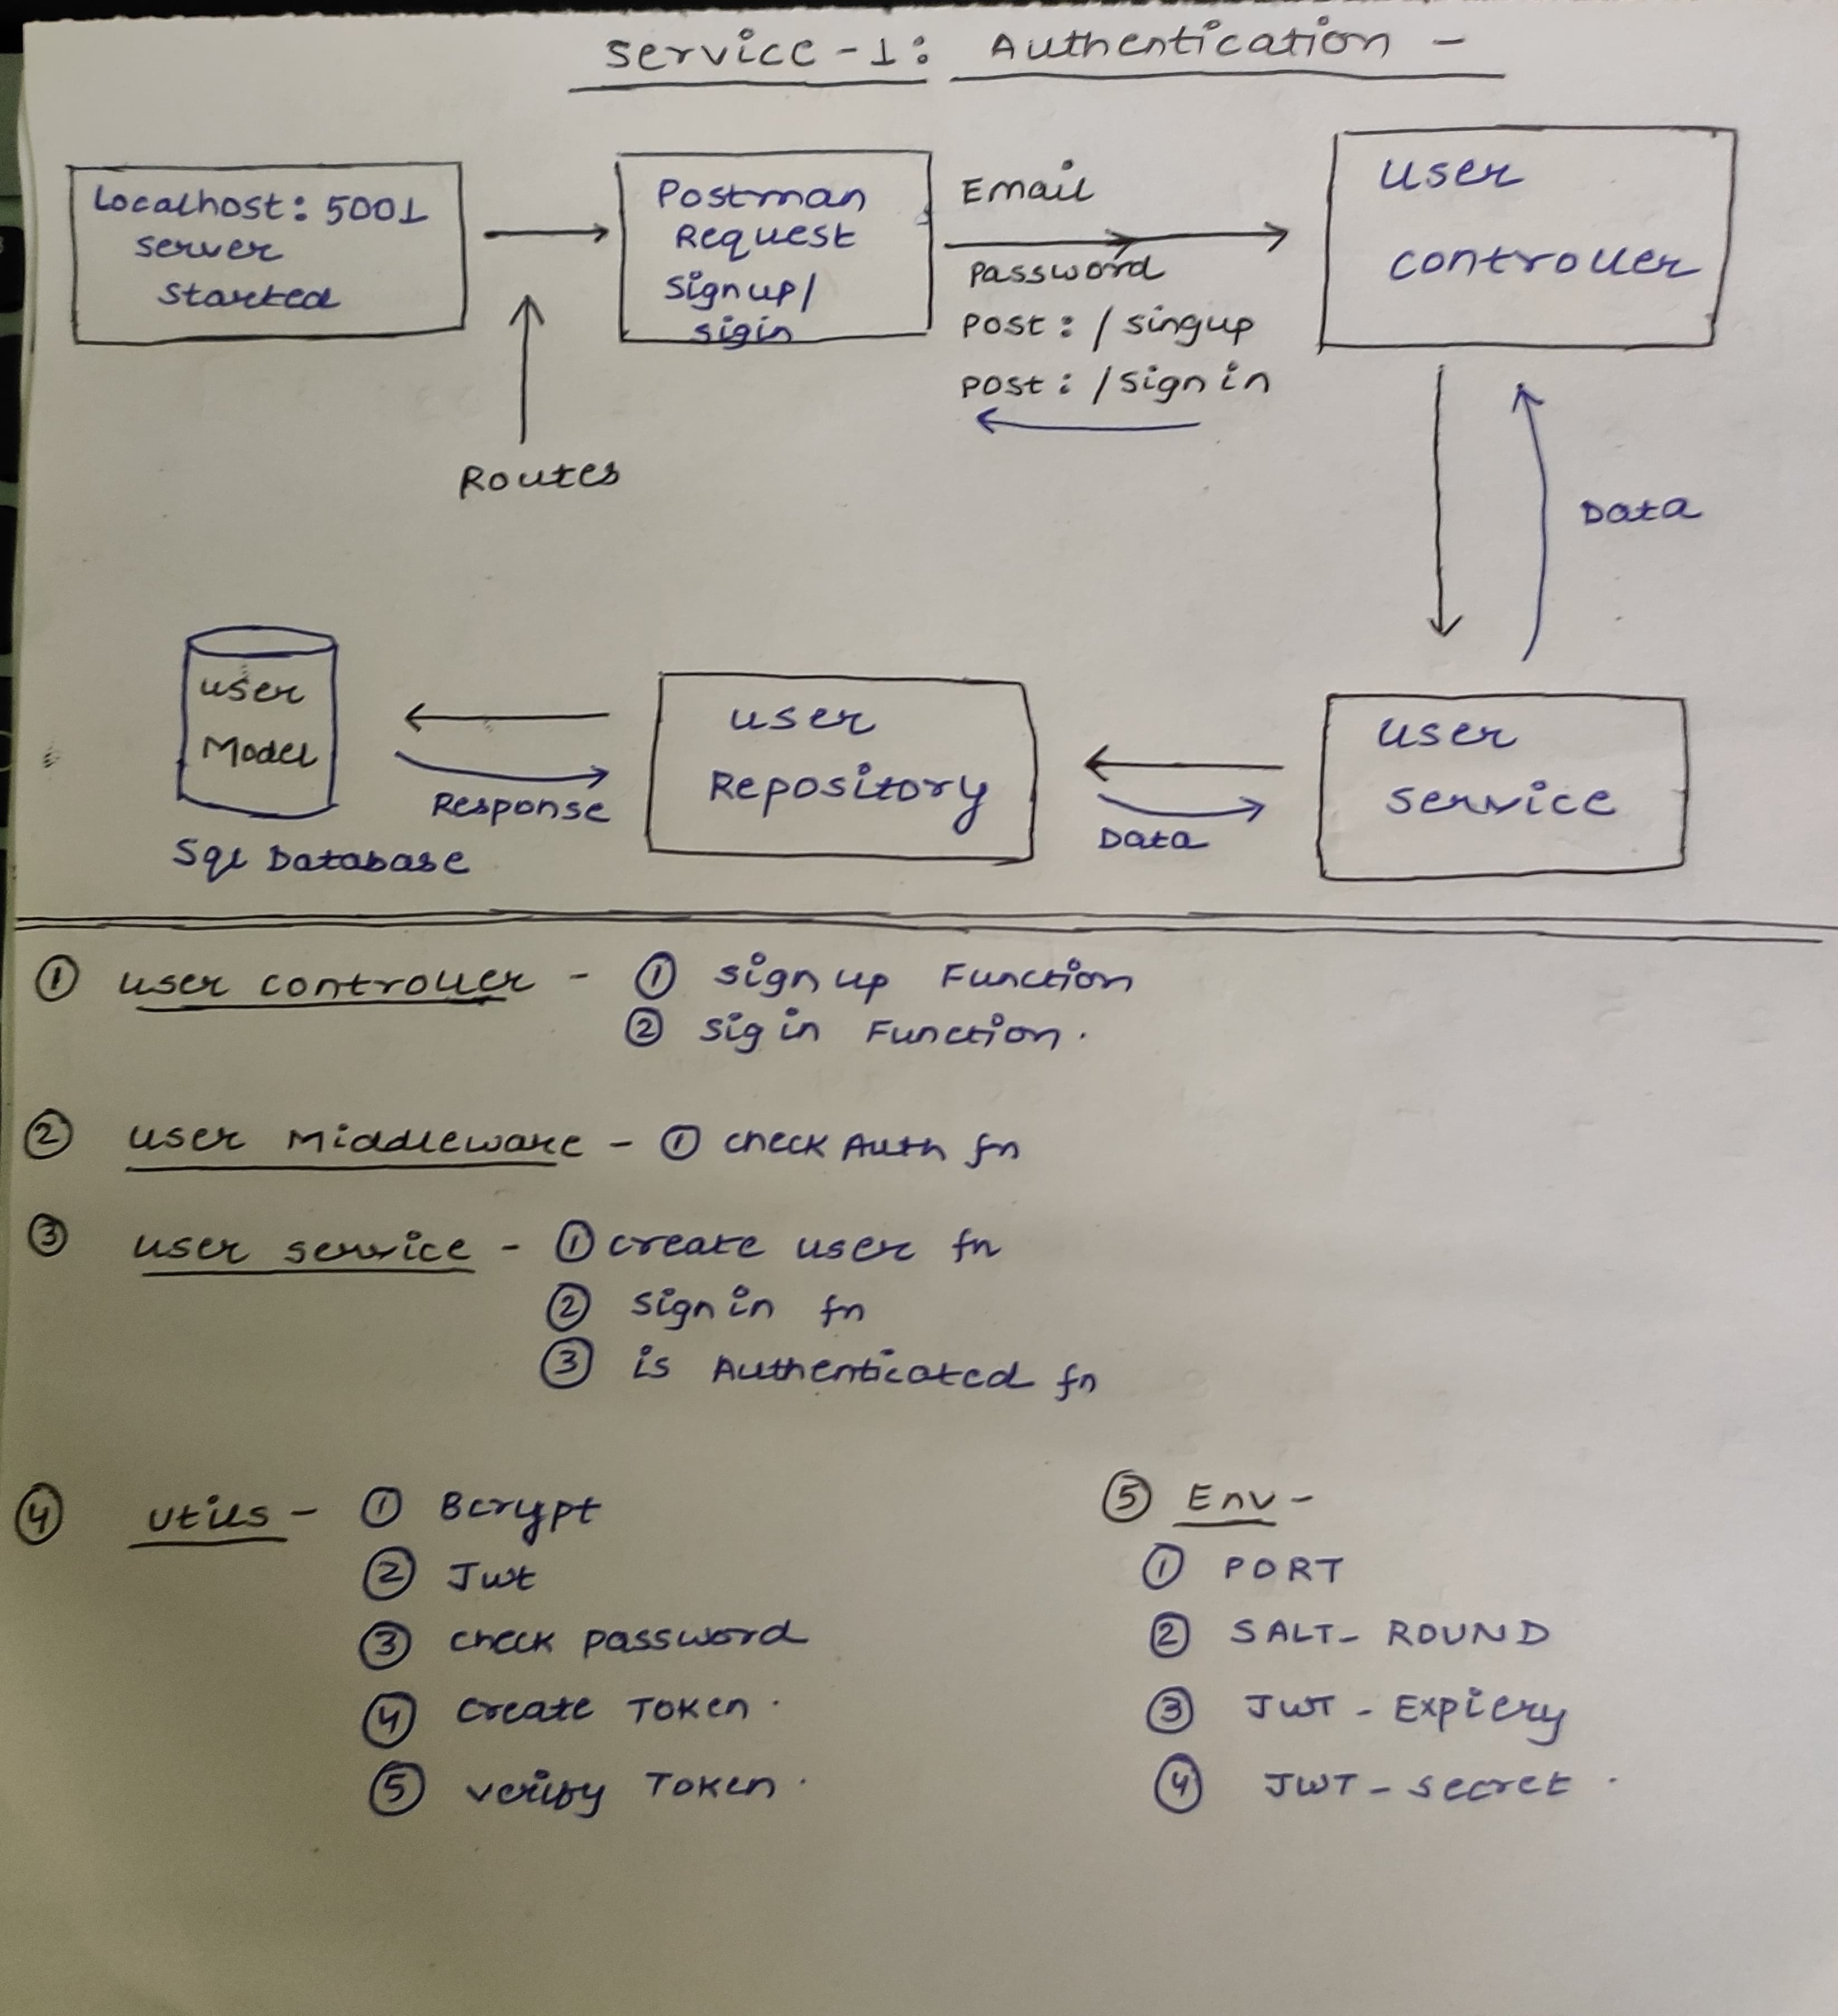 Service-1: Authentication -
Localhost: 5001
server
started
Postman
Request
Signup/
sigin
Email
Password
Post: /singup
Post: /signin
user
controller
Routes
Data
user
Model
Sql Database
Response
user
Repository
Data
user
service
① user controller - ① signup Function
② sigin Function.
② user Middleware - ① check Auth fn
③ user service - ① create user fn
② signin fn
③ is Authenticated fn
④ utils - ① Bcrypt
② Jwt
③ check password
④ create Token.
⑤ verify Token.
⑤ Env -
① PORT
② SALT_ROUND
③ JWT - Expiery
④ JWT - secret.